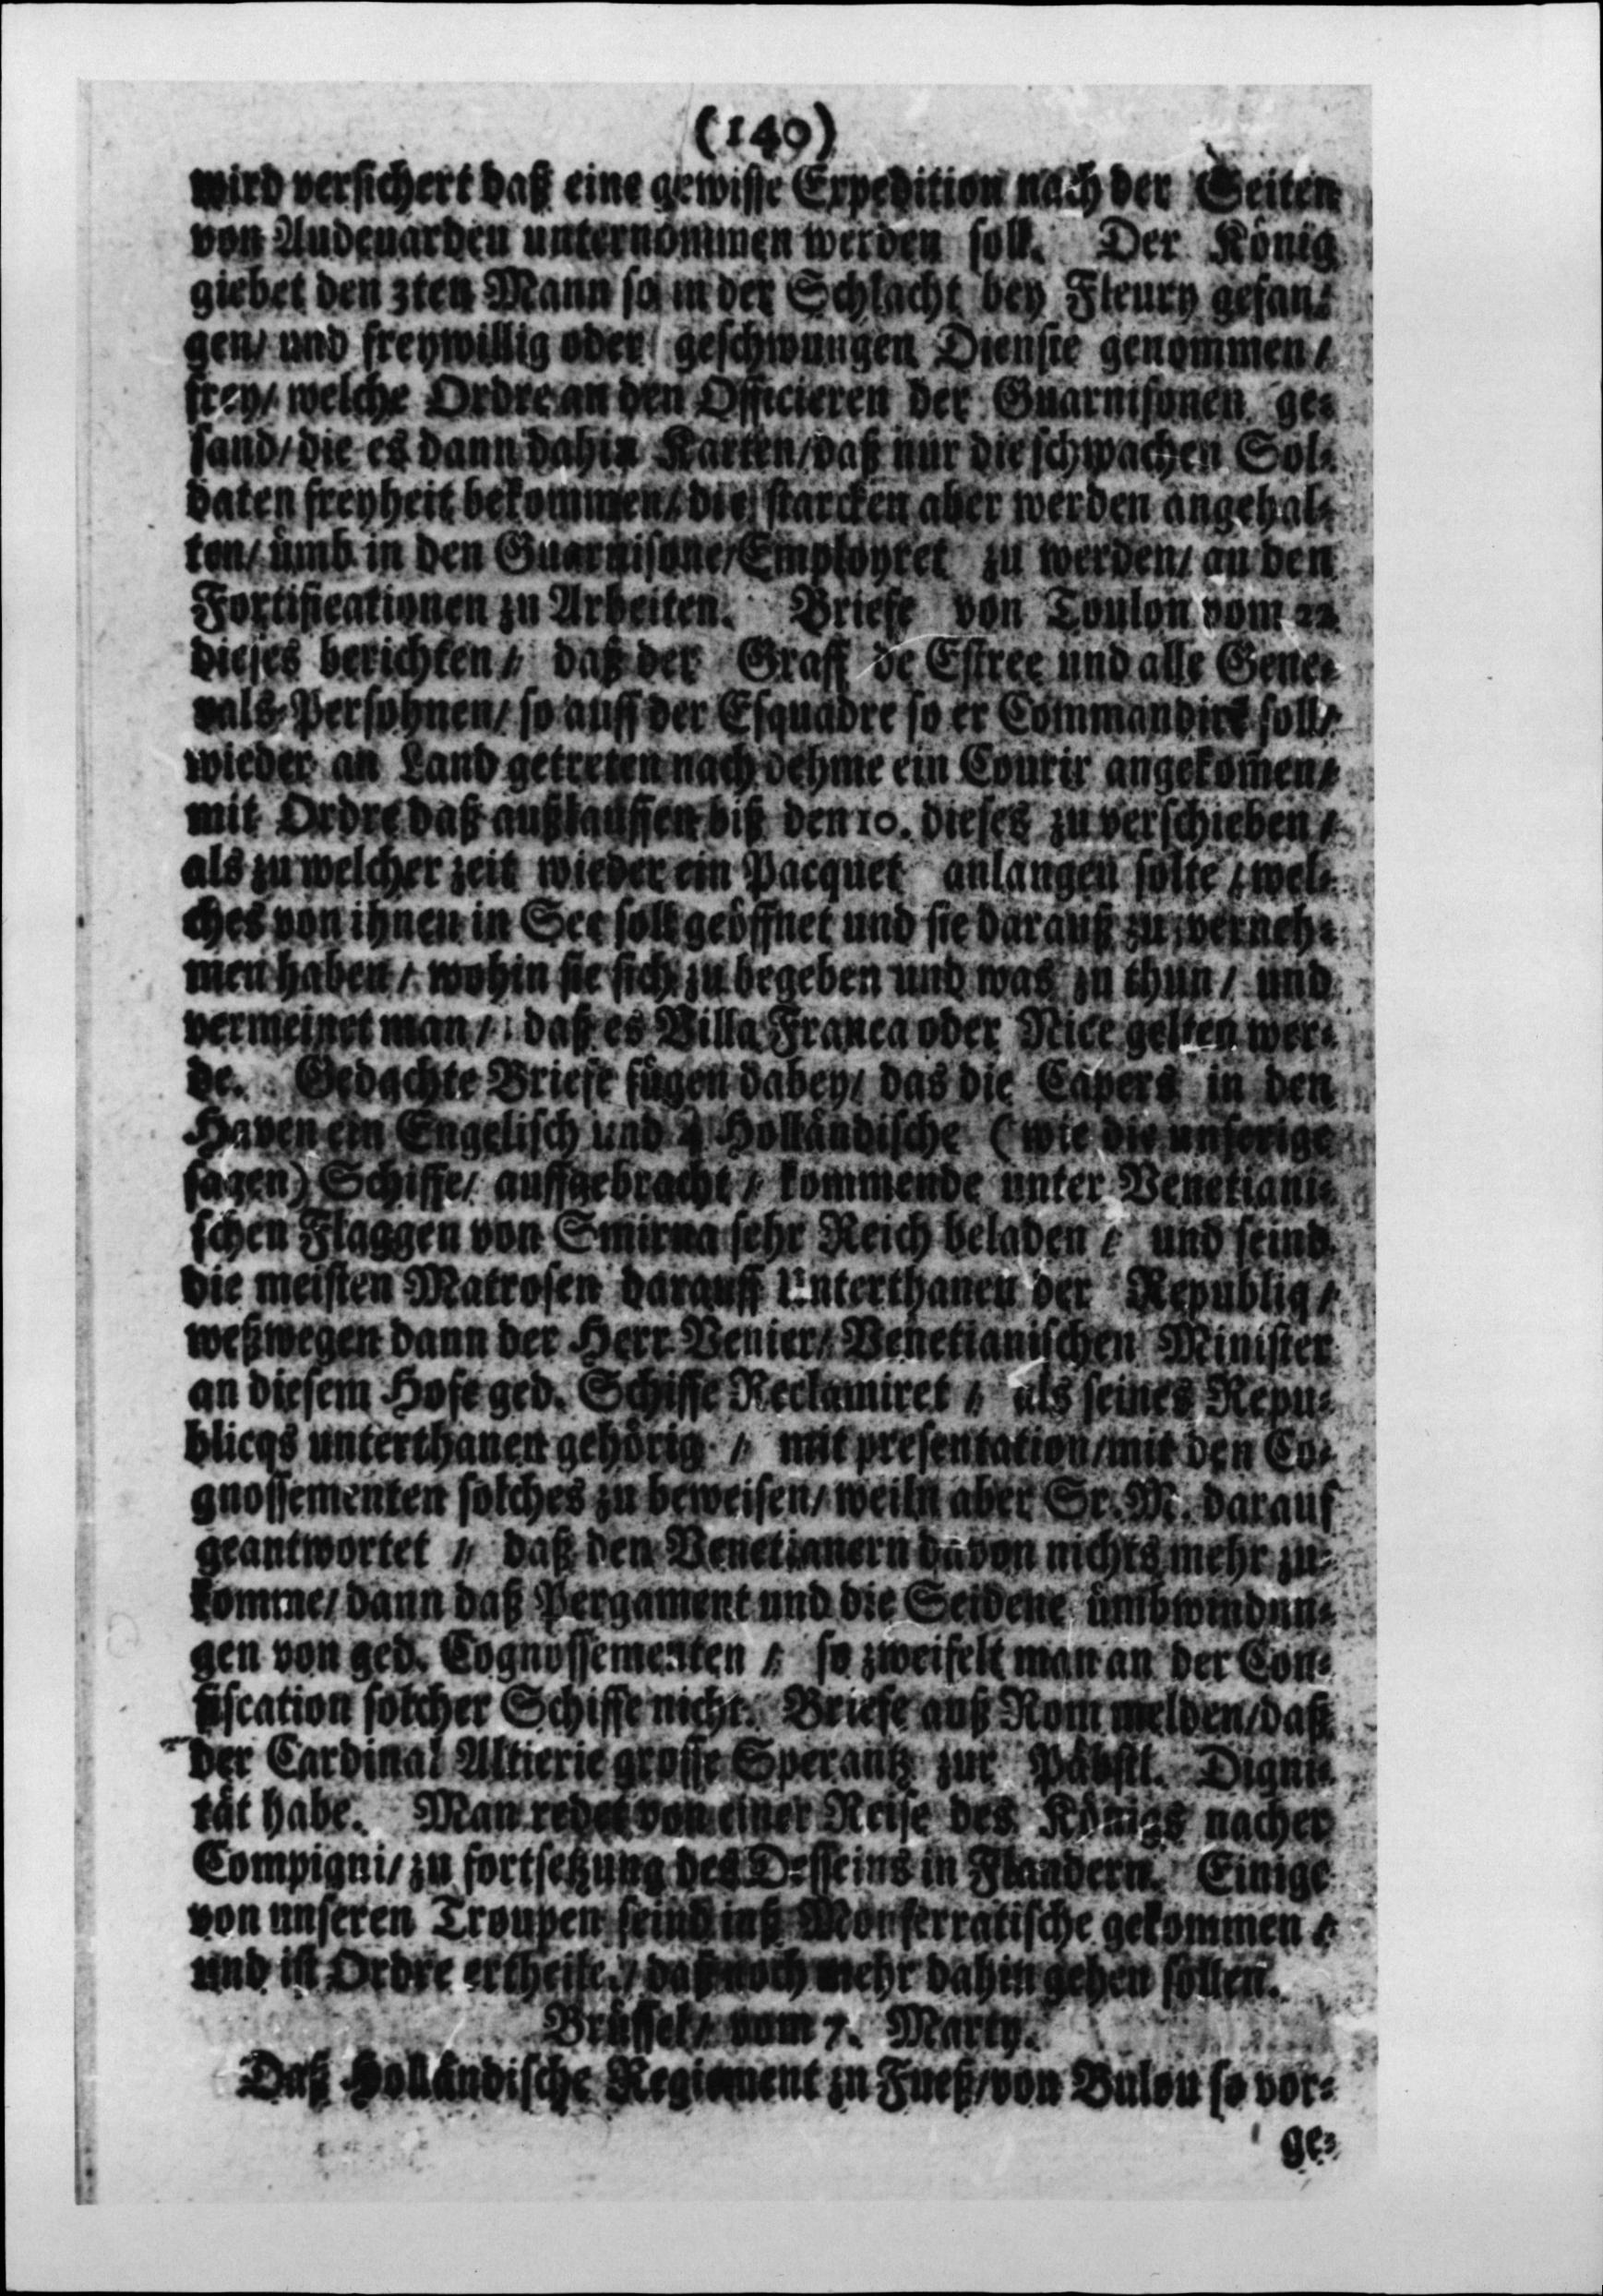 (140)
wird versichert daß eine gewisse Expedition nach der Seiten
von Audenarden unternommen werden soll. Der König
giebet den 3ten Mann so in der Schlacht bey Fleury gefan-
gen/ und freywillig oder geschwungen Dienste genommen/
frey/ welche Ordre an den Officieren der Guarnisonen ge-
sand/ die es dann dahin Karten/ daß nur die schwachen Sol-
daten freyheit bekommen/ die starcken aber werden angehal-
ten/ ümb in den Guarnisone/ Employret zu werden/ an den
Fortificationen zu Arbeiten. Briefe von Toulon vom 22.
dieses berichten/ daß der Graff de Estree und alle Gene-
rals-Persohnen/ so auff der Esquadre so er Commandirt soll/
wieder an Land getreten nach dehme ein Courir angekom̄en/
mit Ordre daß außlauffen biß den 10. dieses zu verschieben/
als zu welcher zeit wieder ein Pacquet anlangen solte/ wel-
ches von ihnen in See soll geöffnet und sie darauß zu verneh-
men haben/ wohin sie sich zu begeben und was zu thun/ und
vermeinet man/ daß es Villa Franca oder Nice gelten wer-
de. Gedachte Briefe fügen dabey/ das die Capers in den
Haven ein Engelisch und 4 Holländische (wie die unserige
sagen) Schiffe/ auffgebracht/ kommende unter Venetiani-
schen Flaggen von Smirna sehr Reich beladen/ und seind
die meisten Matrosen darauff Unterthanen der Republiq/
weßwegen dann der Herr Venier/ Venetianischen Minister
an diesem Hofe ged. Schiffe Reclamiret/ als seines Repu-
blicqs unterthanen gehörig/ mit presentation/ mit den Co-
gnossementen solches zu beweisen/ weiln aber Sr. M. darauf
geantwortet/ daß den Venetianern davon nichts mehr zu-
komme/ dann daß Pergament und die Seidene ümbwindun-
gen von ged. Cognossementen/ so zweifelt man an der Con-
fiscation solcher Schiffe nicht. Briefe auß Rom melden/ daß
der Cardinal Altierie grosse Sperantz zur Päbstl. Digni-
tät habe. Man redet von einer Reise des Königs nacher
Compigni/ zu fortsetzung des Desseins in Flandern. Einige
von unseren Troupen seind inß Monferratische gekommen/
und ist Ordre ertheilet/ daß noch mehr dahin gehen sollen.
Brüssel/ vom 7. Marty.
Daß Holländische Regiement zu Fueß/ von Bulou so vor-
ge-